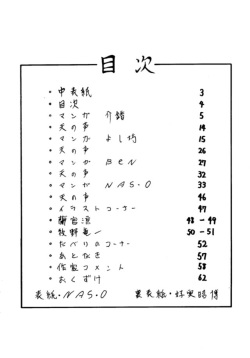 目次
・中表紙 3
・目次 4
・マンガ 介錯 5
・天の声 14
・マンガ よし坊 15
・天の声 26
・マンガ BEN 27
・天の声 32
・マンガ NAS・O 33
・天の声 46
・イラストコーナー 47
48-49
・牧野竜一 50-51
・だべりのコーナー 52
・あとがき 57
・作家コメント 58
・おくずけ 62
表紙・NAS・O 裏表紙・